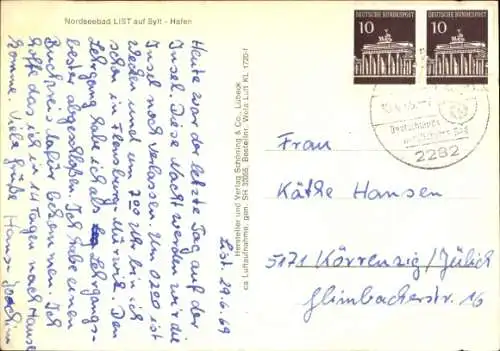 Nordseebad LIST auf Sylt - Hafen
List, 29.6.69
Heute war der letzte Tag auf der
Insel. Diese Nacht werden wir die
Insel noch verlassen. Um 0200 ist
Wecken und um 700 Uhr bin ich
schon in Flensburg-Mürwik. Den
Lehrgang habe ich als Lehrgangs-
bester abgeschloßen. Ich habe einen
Buchpreis dafür bekommen. Ich
hoffe das ich in 14 Tagen nach Hause
komme. Viele Grüße Hans Joachim
Hersteller und Verlag Schöning & Co., Lübeck
ca Luftaufnahme, gen. SH 3055, Bestellnr. Wela Luft KL 1720-f
DEUTSCHE BUNDESPOST
10
DEUTSCHE BUNDESPOST
10
Deutschlands
2282
Frau
Käthe Hansen
5171 Körrenzig/Jülich
Glimbacherstr. 16